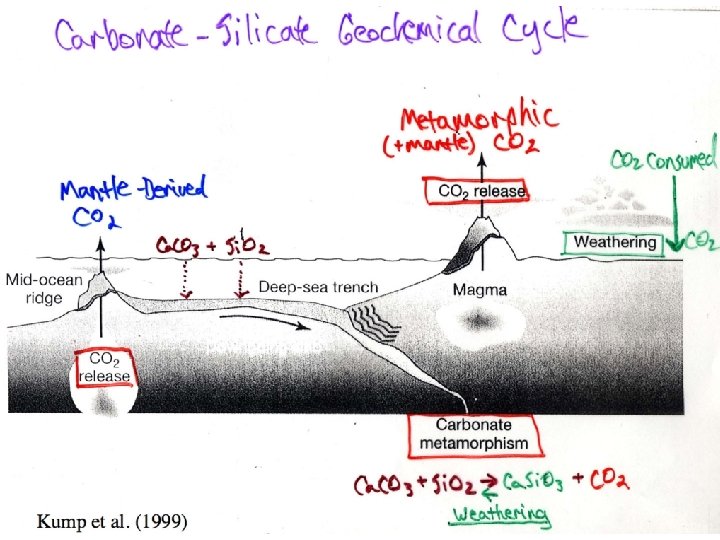 Carbonate-Silicate Geochemical Cycle
Metamorphic
(+mantle) CO2
CO2 release
CO2 Consumed
Mantle-Derived
CO2
CaCO3 + SiO2
Weathering
CO2
Mid-ocean
ridge
Deep-sea trench
Magma
CO2
release
Carbonate
metamorphism
CaCO3 + SiO2 ⇄ CaSiO3 + CO2
Weathering
Kump et al. (1999)